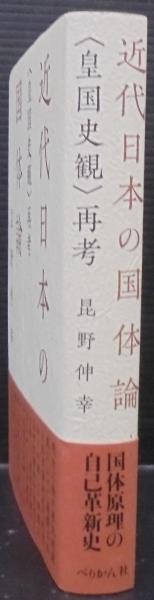 近代日本の国体論
〈皇国史観〉再考
昆野伸幸
国体原理の
自己革新史
ぺりかん社
近代日本の
国体論
〈皇国史観〉再考